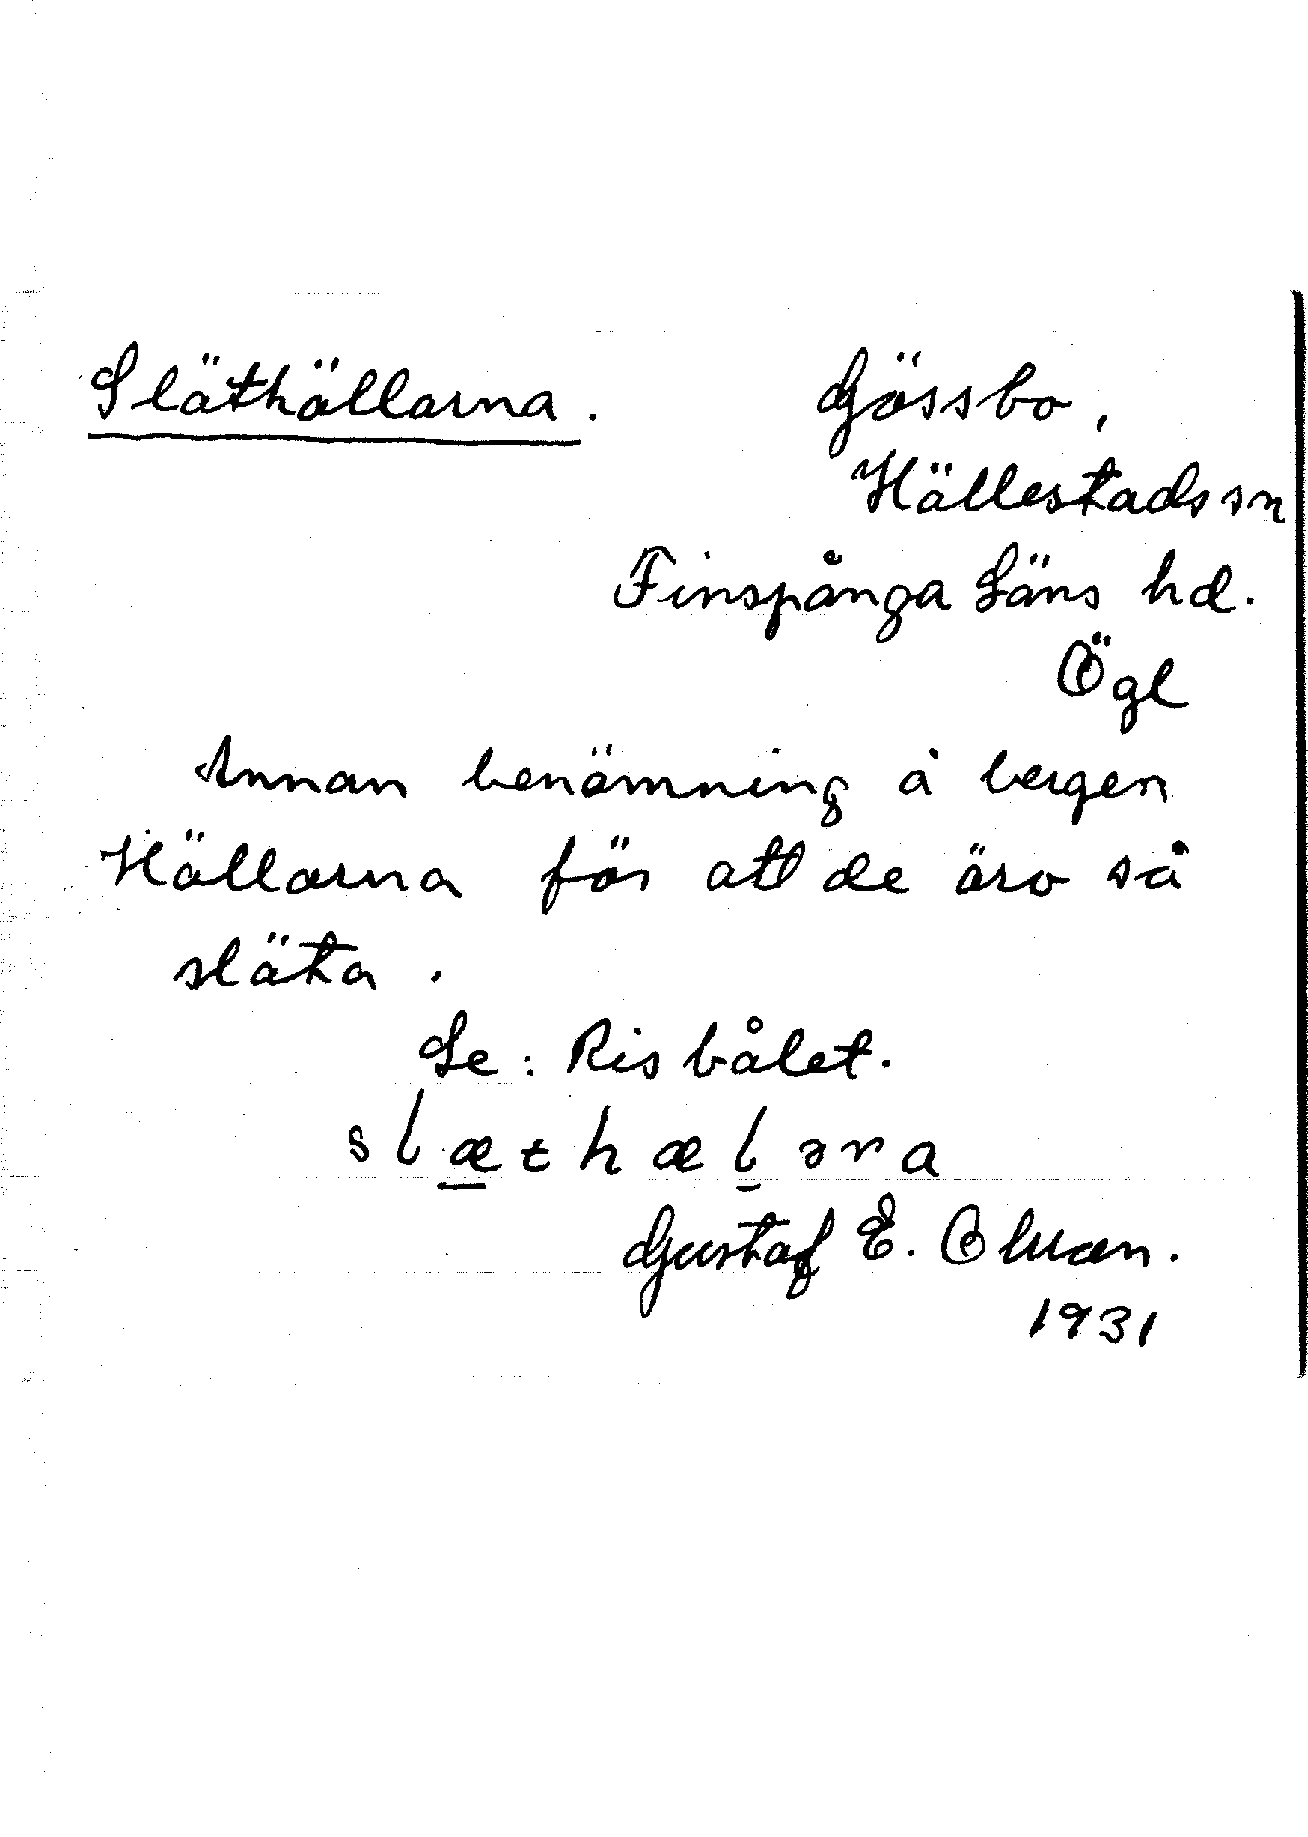 Släthällarna. Gössbo,
Hällestads sn
Finspånga Läns hd.
Ögl
Annan benämning å bergen
Hällarna för att de äro så
släta.
Se: Risbålet.
slæthælərna
Gustaf E.
1931